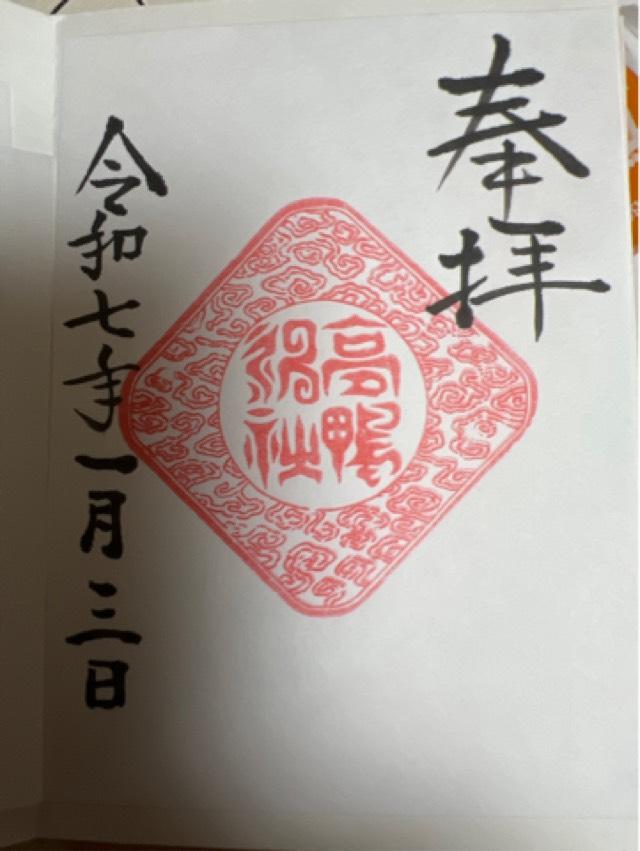 奉拝
高鴨
神社
令和七年一月三日